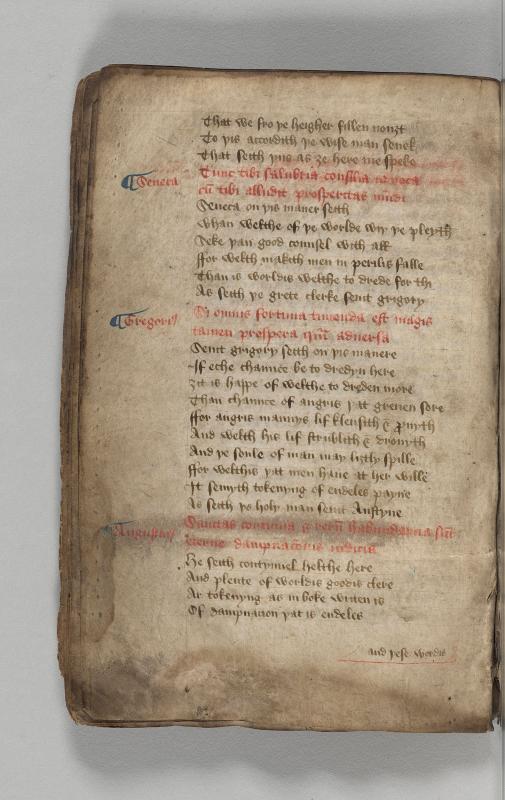 That we fro þe heigher fillen nouȝt
To þis accordith þe wise man senek
That seith þus as ȝe here me speke
Seneca
Tunc tibi salubria consilia
cū tibi alludit prosperitas mūdi
Seneca on þis maner seith
Whan welthe of þe worlde wiþ þe pleyth
Seke þan good counsel with all
ffor welth makith men in perilis falle
Than is worldis welthe to drede for thi
As seith þe grete clerke seint grigory
Gregoriꝰ
Si omnis fortuna timenda est magis
tamen prospera qm̄ adversa
Seint grigory seith on þis manere
If eche chaunce be to dredyn here
Ȝit is happe of welthe to dreden more
Than chaunce of angris þat greuen sore
ffor angris mannys lif klensith & proyth
And welth his lif strublith & drouyth
And þe soule of man may liȝtly spille
ffor welthis þat men haue at her wille
It semyth tokenyng of endeles payne
As seith þs holy man seint Austyne
Augustinꝰ
Sanitas continua & rerū habundancia sūt
eterne dampnacōnis indicia
He seith contynuel helthe here
And plente of worldis goodis clere
Ar tokenyng as in boke writen is
Of dampnacion þat is endeles
and þese wordis